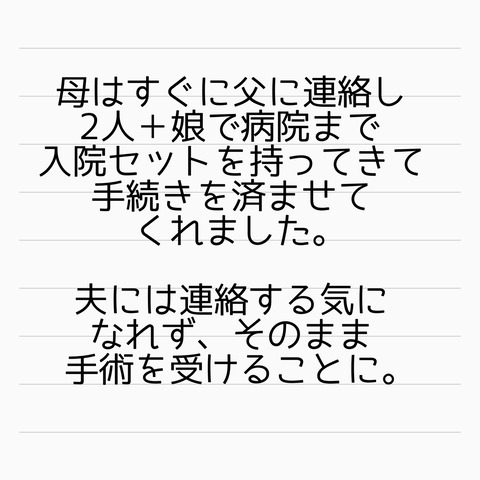 母はすぐに父に連絡し
2人＋娘で病院まで
入院セットを持ってきて
手続きを済ませて
くれました。
夫には連絡する気に
なれず、そのまま
手術を受けることに。